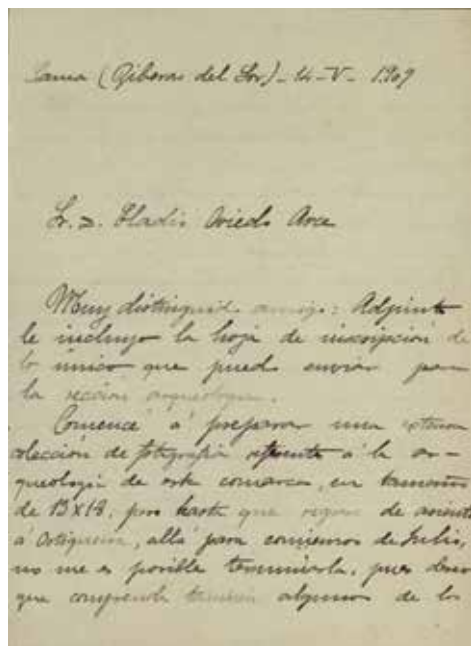 (Riberas del Sor) - 14 - V - 1909
Sr. D. Eladio Oviedo Arce
Muy distinguido amigo: Adjunto
le incluyo la hoja de inscripción de
lo único que puedo enviar para
la sección arqueologica.
Comencé á preparar una extensa
colección de fotografia referente á la ar-
queologia de esta comarca, en tamaño
de 13x18, pero hasta que regrese de
á Ortigueira, allá para comienzos de Julio,
no me es posible terminarla, pues deseo
que comprenda tambien algunos de los